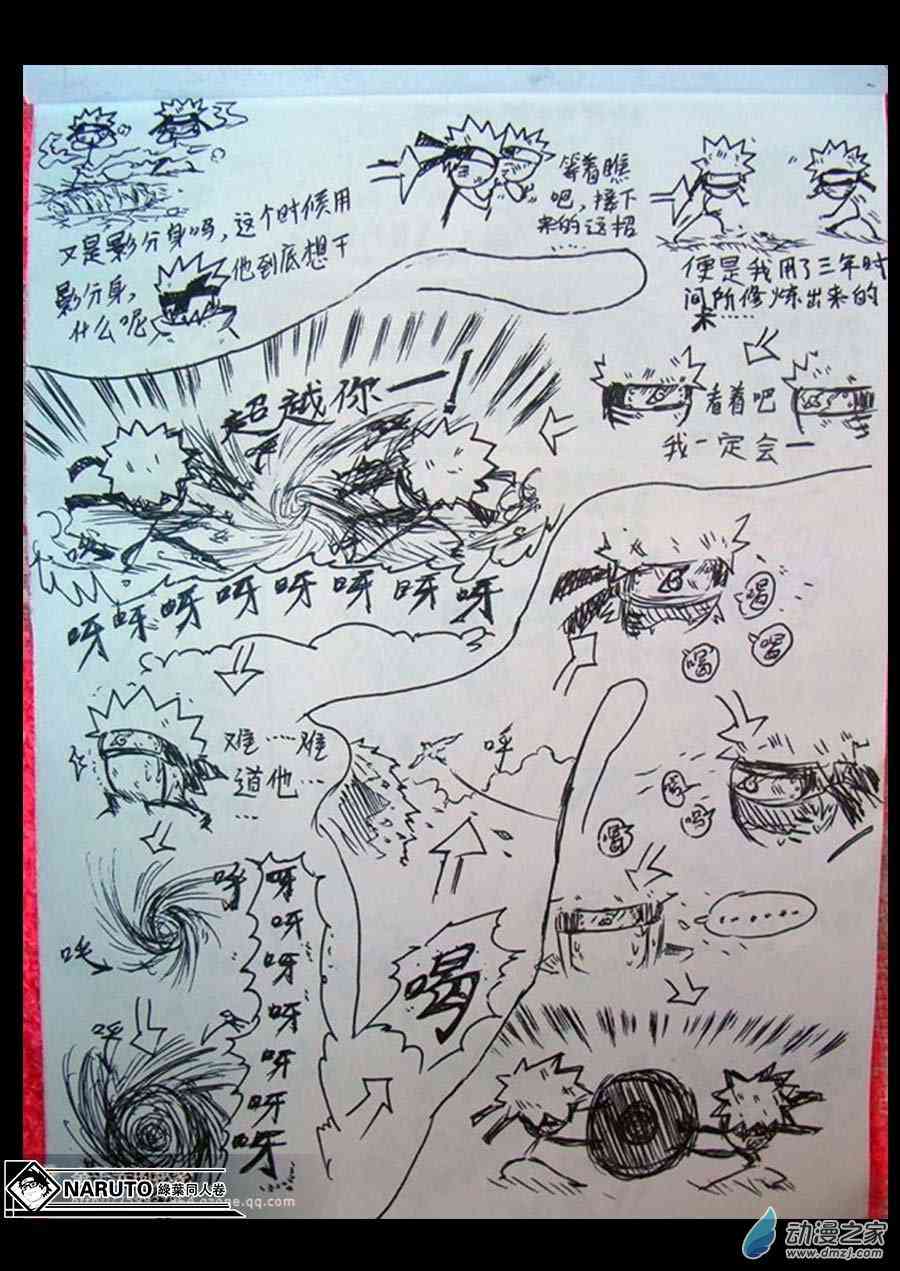 又是影分身吗，这个时候用
影分身，
他到底想干
什么呢
等着瞧
吧，接下
来的这招
便是我用了三年时
间所修炼出来的
术……
看着吧
我一定会一
超越你一！
呀呀呀呀呀呀呀呀
喝
喝
喝
喝
喝
……
难……难
道他……
……
呼
喝
呀
呀
呀
呀
呀
呀
呀
NARUTO 綠葉同人卷
动漫之家
www.dmzj.com